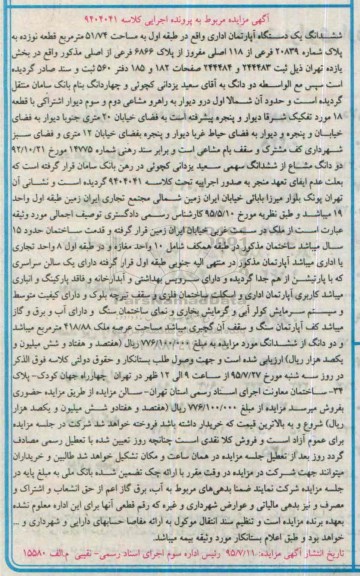 آگهی مزایده مربوط به پرونده اجرایی کلاسه ۹۴۰۴۰۴۱
ششدانگ یک دستگاه آپارتمان اداری واقع در طبقه اول به مساحت ۵۱/۷۴ مترمربع قطعه نوزده به
پلاک شماره ۲۰۸۳۹ فرعی از ۱۱۸ اصلی مفروز از پلاک ۶۸۶۶ فرعی از اصلی مذکور واقع در بخش
یازده تهران ذیل ثبت ۲۴۴۴۸۳ و ۲۴۴۴۸۴ صفحات ۱۸۲ و ۱۸۵ دفتر ۵۶۰ ثبت و سند صادر گردیده
است سپس مع الواسطه دو دانگ به آقای سعید یزدانی کچوئی و چهاردانگ بنام بانک سامان منتقل
گردیده است و حدود آن شمالا اول درو دیوار به راهرو مشاعی دوم و سوم دیوار اشتراکی با قطعه
۱۸ مورد تفکیک شرقا دیوار و پنجره پیشرفته است به فضای خیابان ۲۰ متری جنوبا دیوار به فضای
خیابان و پنجره و دیوار به فضای حیاط غربا دیوار و پنجره بفضای خیابان ۱۲ متری و فضای سبز
شهرداری کف مشترک و سقف بام مشاعی است و برابر سند رهنی شماره ۱۴۷۷۵ مورخ ۹۲/۱۰/۲۱
دو دانگ مشاع از ششدانگ سهمی سعید یزدانی کچوئی در رهن بانک سامان قرار گرفته است که
بعلت عدم ایفای تعهد منجر به صدور اجراییه تحت کلاسه ۹۴۰۴۰۴۱ گردیده است و نشانی آن
تهران پونک بلوار میرزا بابائی خیابان ایران زمین شمالی مجتمع تجاری ایران زمین طبقه اول واحد
۱۹ میباشد و طبق نظریه مورخ ۹۵/۵/۱۰ کارشناس رسمی دادگستری توصیف اجمالی مورد وثیقه
عبارت است: از ملک در سمت غربی خیابان ایران زمین قرار گرفته و قدمت ساختمان حدود ۱۵
سال میباشد ساختمان مذکور در طبقه همکف شامل ۱۰ واحد مغازه و در طبقه اول ۸ واحد تجاری
یا اداری میباشد آپارتمان مذکور در منتهی الیه جنوبی طبقه اول قرار گرفته دارای یک سالن سراسری
که با پارتیشن از هم جدا گردیده و دارای سرویس بهداشتی و آبدارخانه و فاقد پارکینگ و انباری
میباشد کاربری آپارتمان اداری و اسکلت ساختمان فلزی و سقف تیرچه بلوک و دارای کیفیت متوسط
و سیستم سرمایش کولر آبی و گرمایش بخاری و نمای ساختمان سنگ و دارای آب و برق و گاز
میباشد کف آپارتمان سنگ و سقف آن گچبری میباشد مساحت عرصه ملک ۴۱۸/۸۸ مترمربع میباشد
و دو دانگ از ششدانگ مورد مزایده به مبلغ ۷۷۶/۱۰۰/۰۰۰ ریال (هفتصد و هفتاد و شش میلیون و
یکصد هزار ریال) ارزیابی شده است و جهت وصول طلب بستانکار و حقوق دولتی کلاسه فوق الذکر
در روز سه شنبه مورخ ۹۵/۷/۲۷ از ساعت ۹ الی ۱۲ ظهر در تهران چهارراه جهان کودک- پلاک
۳۳- ساختمان معاونت اجرای اسناد رسمی استان تهران- سالن مزایده از طریق مزایده حضوری
بفروش میرسد مزایده از مبلغ ۷۷۶/۱۰۰/۰۰۰ ریال (هفتصد و هفتادو شش میلیون و یکصد هزار
ریال) شروع و به بالاترین قیمت که خریدار داشته باشد فروخته خواهد شد شرکت در جلسه مزایده
برای عموم آزاد است و فروش کلا نقدی است چنانچه روز تعیین شده با تعطیل رسمی مصادف
گردد روز بعد از تعطیل جلسه مزایده در همان ساعت و مکان تشکیل خواهد شد طالبین و خریداران
میتوانند جهت شرکت در مزایده در وقت مقرر با ارائه چک تضمین شده بانک ملی به مبلغ پایه در
جلسه مزایده شرکت نمایند ضمنا بدهی های مربوط به آب، برق گاز اعم از حق انشعاب و اشتراک و
مصرف و نیز بدهی مالیاتی و عوارض شهرداری و غیره که رقم قطعی آنها برای این اداره معلوم نشده
بعهده برنده مزایده است و تنظیم سند انتقال موکول به ارائه مفاصا حسابهای دارایی و شهرداری و ...
خواهد بود و طبق اعلام بستانکار مورد وثیقه بیمه میباشد.
تاریخ انتشار آگهی مزایده: ۹۵/۷/۱۱ رئیس اداره سوم اجرای اسناد رسمی- تقیئی م.الف ۱۵۵۸۰